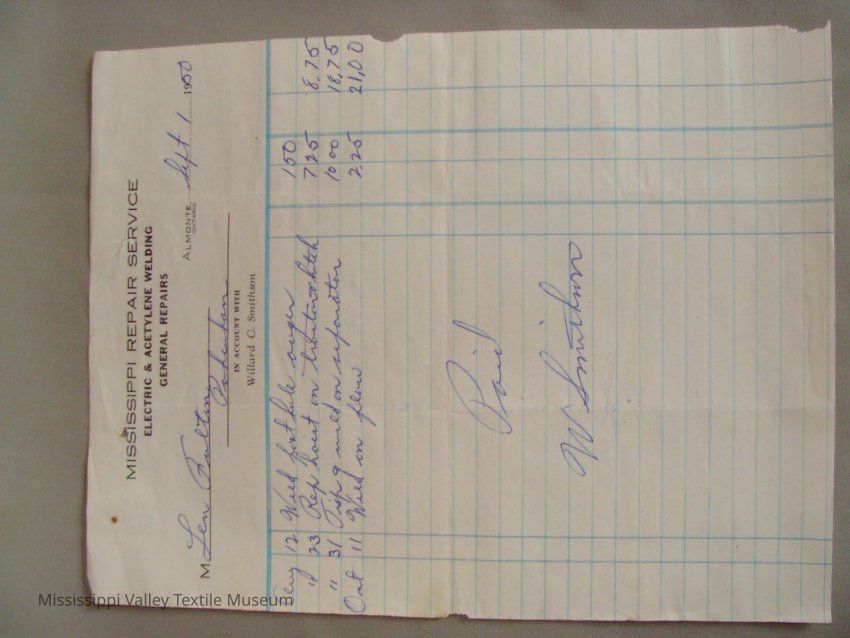 MISSISSIPPI REPAIR SERVICE
ELECTRIC & ACETYLENE WELDING
GENERAL REPAIRS
ALMONTE, ONTARIO Sept 1 1950
M Len Fulton
Pakenham
IN ACCOUNT WITH
Willard C. Smithson
Aug 12 Weld post hole auger 1 50
" 23 Rep hoist on 7 25 8,75
" 31 Trip & weld on separator 10 00 18,75
Oct 11 Weld on plow 2,25 21,00
Paid
W Smithson
Mississippi Valley Textile Museum